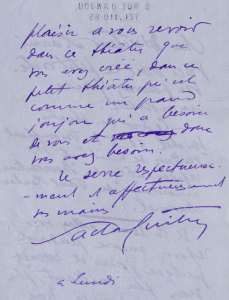 8 RUE D'ANJOU
TEL. 110-65
plaisir à vous revoir
dans ce théâtre que
vous avez créé, dans ce
petit théâtre qui est
comme un grand
joujou qui a besoin
de vous et dont
vous avez besoin.
Je serre respectueuse-
-ment & affectueusement
vos mains
Sacha Guitry
à Lundi